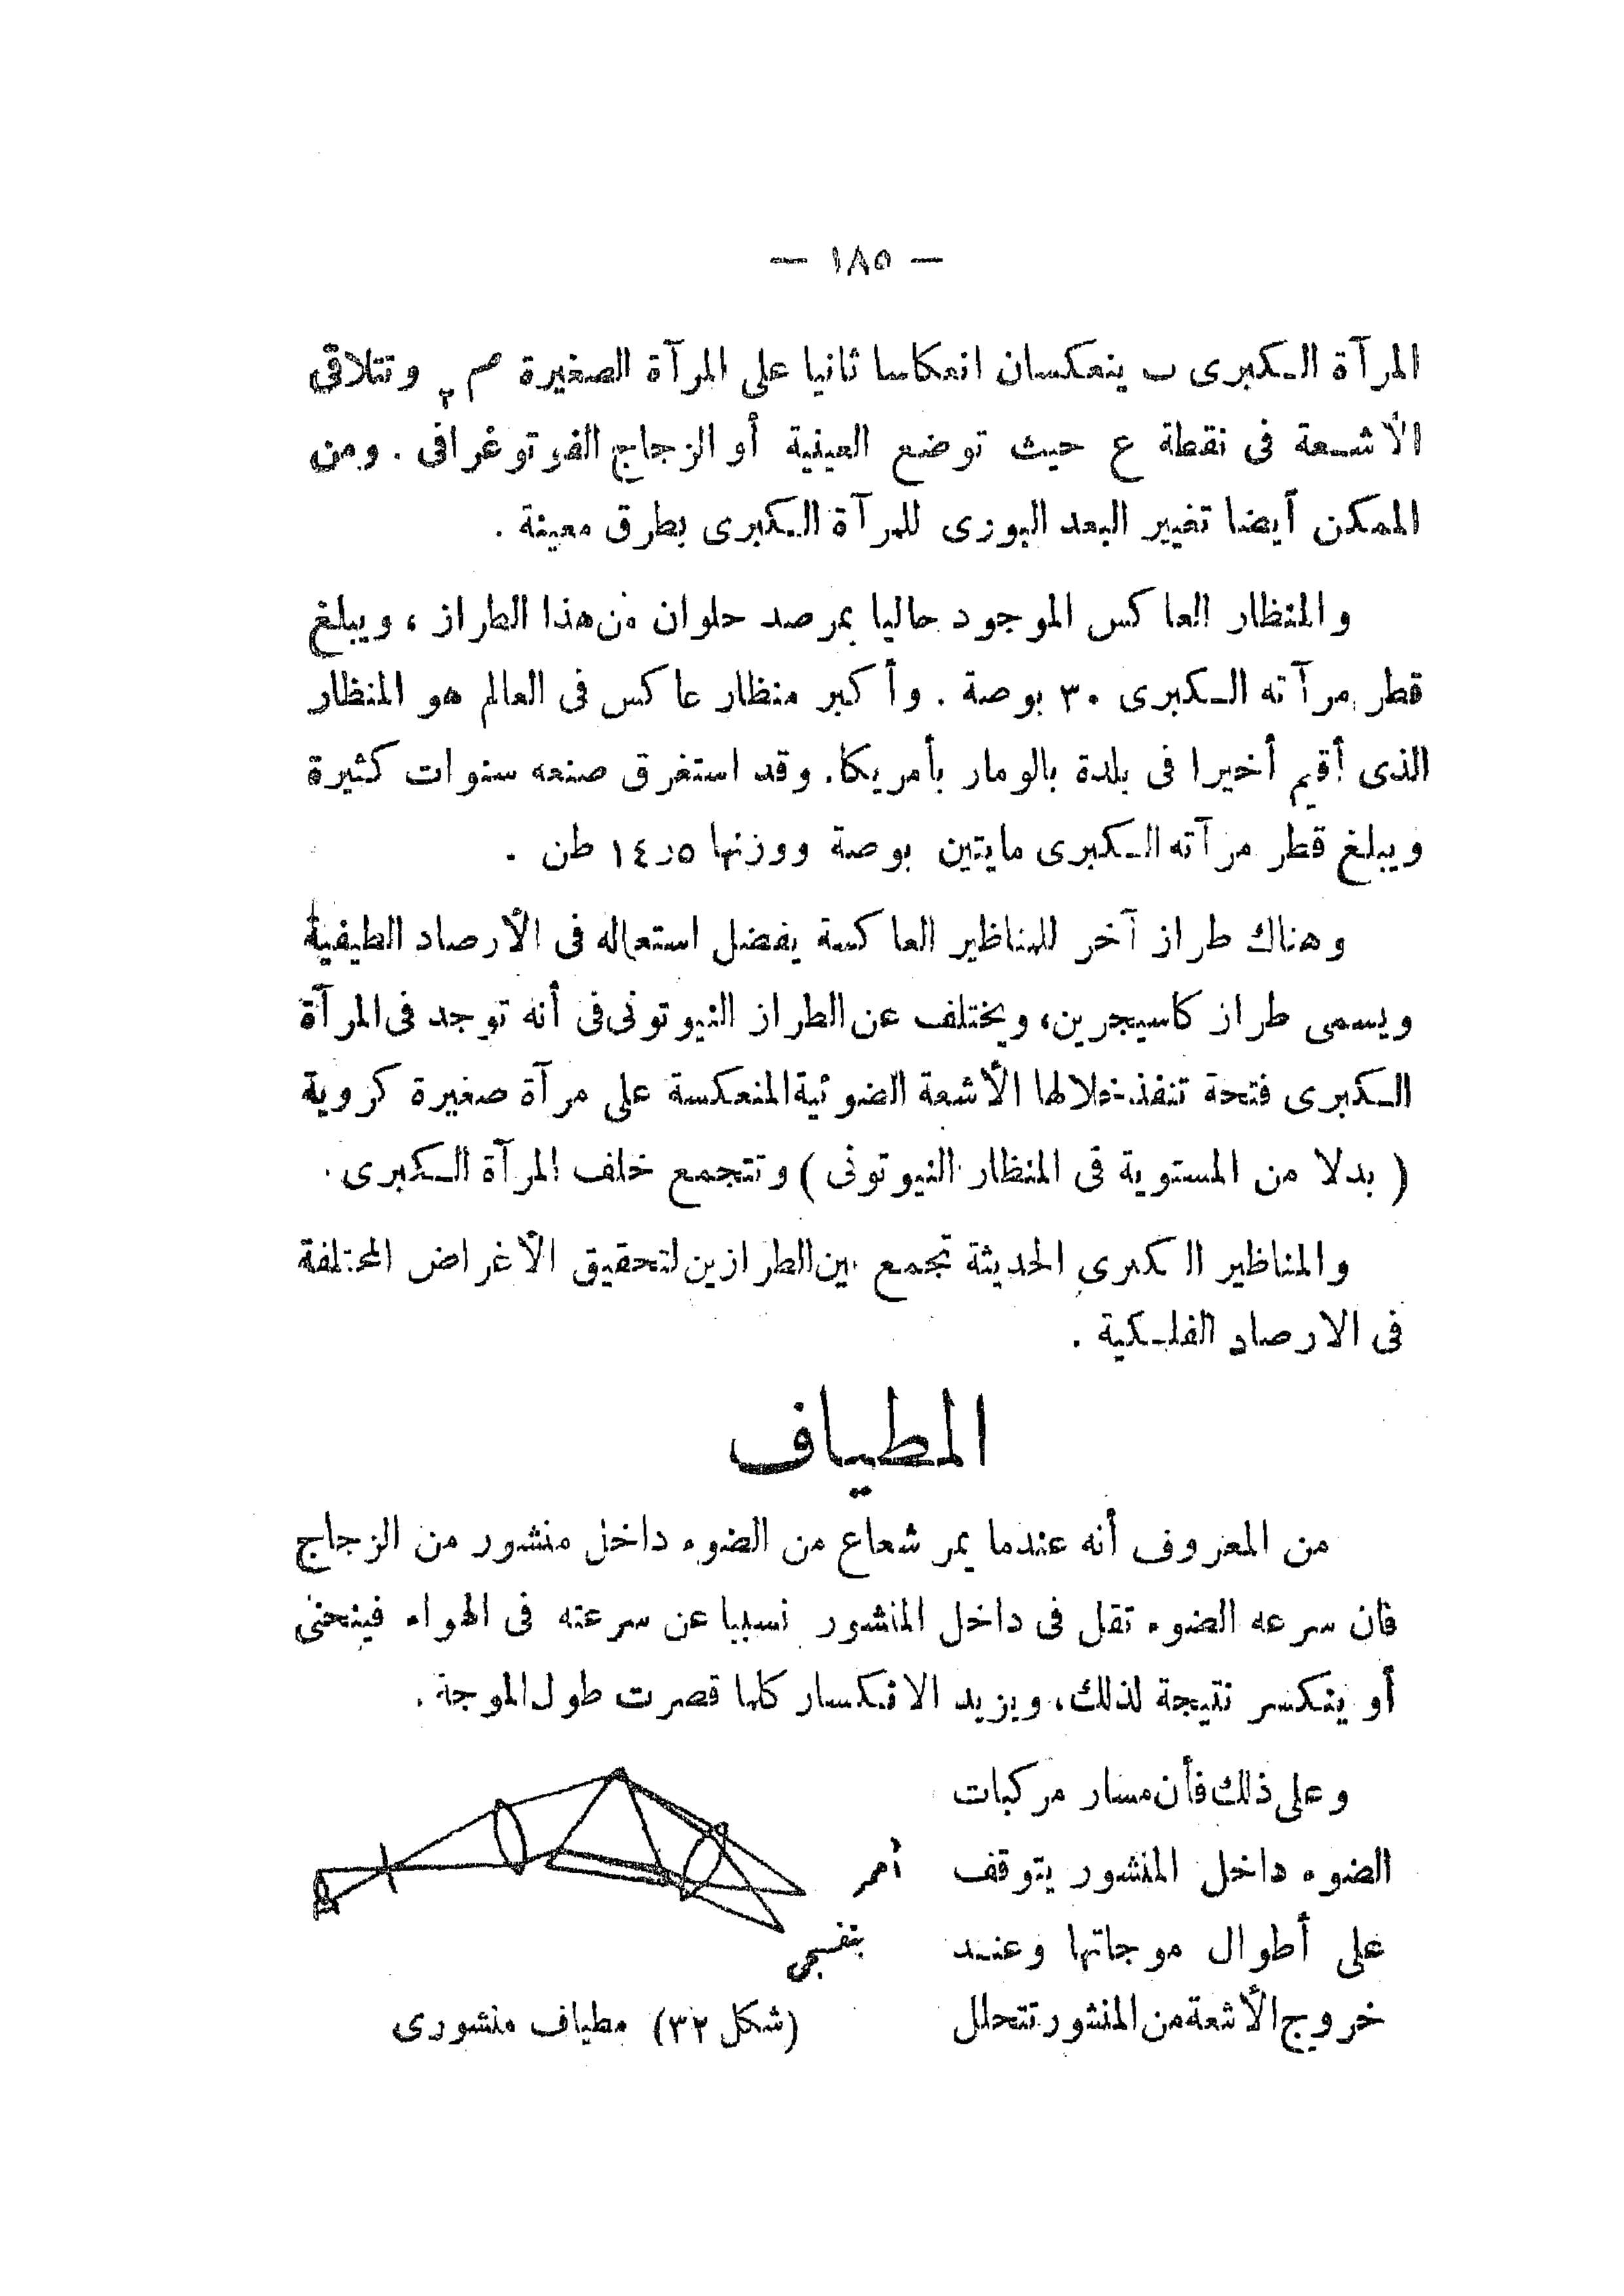 — ١٨٥ —
المرآة الكبرى ب ينعكسان انعكاسا ثانيا على المرآة الصغيرة م٢ وتتلاقى
الأشعة فى نقطة ع حيث توضع العينية أو الزجاج الفوتوغرافى . ومن
الممكن أيضا تغيير البعد البوزى للمرآة الكبرى بطرق معينة .
والمنظار العاكس الموجود حاليا بمرصد حلوان من هذا الطراز ، ويبلغ
قطر مرآته الكبرى ٣٠ بوصة . وأكبر منظار عاكس فى العالم هو المنظار
الذى أقيم أخيرا فى بلدة بالومار بأمريكا. وقد استغرق صنعه سنوات كثيرة
ويبلغ قطر مرآته الكبرى مايتين بوصة ووزنها ١٤ر٥ طن .
وهناك طراز آخر للمناظير العاكسة يفضل استعماله فى الأرصاد الطيفية
ويسمى طراز كاسيجرين، ويختلف عن الطراز النيوتونى فى أنه توجد فى المرآة
الكبرى فتحة تنفذ خلالها الأشعة الضوئية المنعكسة على مرآة صغيرة كروية
( بدلا من المستوية فى المنظار النيوتونى ) وتتجمع خلف المرآة الكبرى .
والمناظير الكبرى الحديثة تجمع بين الطرازين لتحقيق الأغراض المختلفة
فى الارصاد الفلكية .
المطياف
من المعروف أنه عندما يمر شعاع من الضوء داخل منشور من الزجاج
فان سرعه الضوء تقل فى داخل المنشور نسبيا عن سرعته فى الهواء فينحنى
أو ينكسر نتيجة لذلك، ويزيد الانكسار كلما قصرت طول الموجة .
وعلى ذلك فأن مسار مركبات
الضوء داخل المنشور يتوقف
على أطوال موجاتها وعند
خروج الأشعة من المنشور تتحلل
أحمر
بنفسجى
(شكل ٣٢) مطياف منشورى